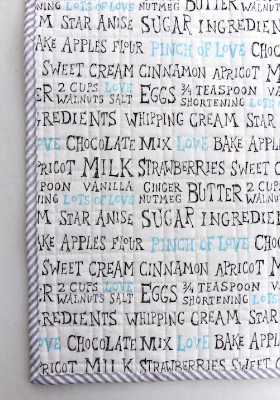 NING LOTS OF LOVE NUTMEG BUTTER WALNUTS
M STAR ANISE SUGAR INGREDIEN
AKE APPLES FLOUR PINCH OF LOVE CHOC
SWEET CREAM CINNAMON APRICOT M
ER 2 CUPS LOVE WALNUTS SALT EGGS ¾ TEASPOON SHORTENING LOTS
GREDIENTS WHIPPING CREAM STAR
OVE CHOCOLATE MIX LOVE BAKE APPL
PRICOT MILK STRAWBERRIES SWEET C
POON VANILLA GINGER NUTMEG BUTTER 2 CUPS WALNUTS
NING LOTS OF LOVE
M STAR ANISE SUGAR INGREDIEN
AKE APPLES FLOUR PINCH OF LOVE CHOC
SWEET CREAM CINNAMON APRICOT M
ER 2 CUPS LOVE WALNUTS SALT EGGS ¾ TEASPOON SHORTENING LOTS
REDIENTS WHIPPING CREAM STAR
OVE CHOCOLATE MIX LOVE BAKE APPL
RICOT MILK STRAWBERRIES SWEET C